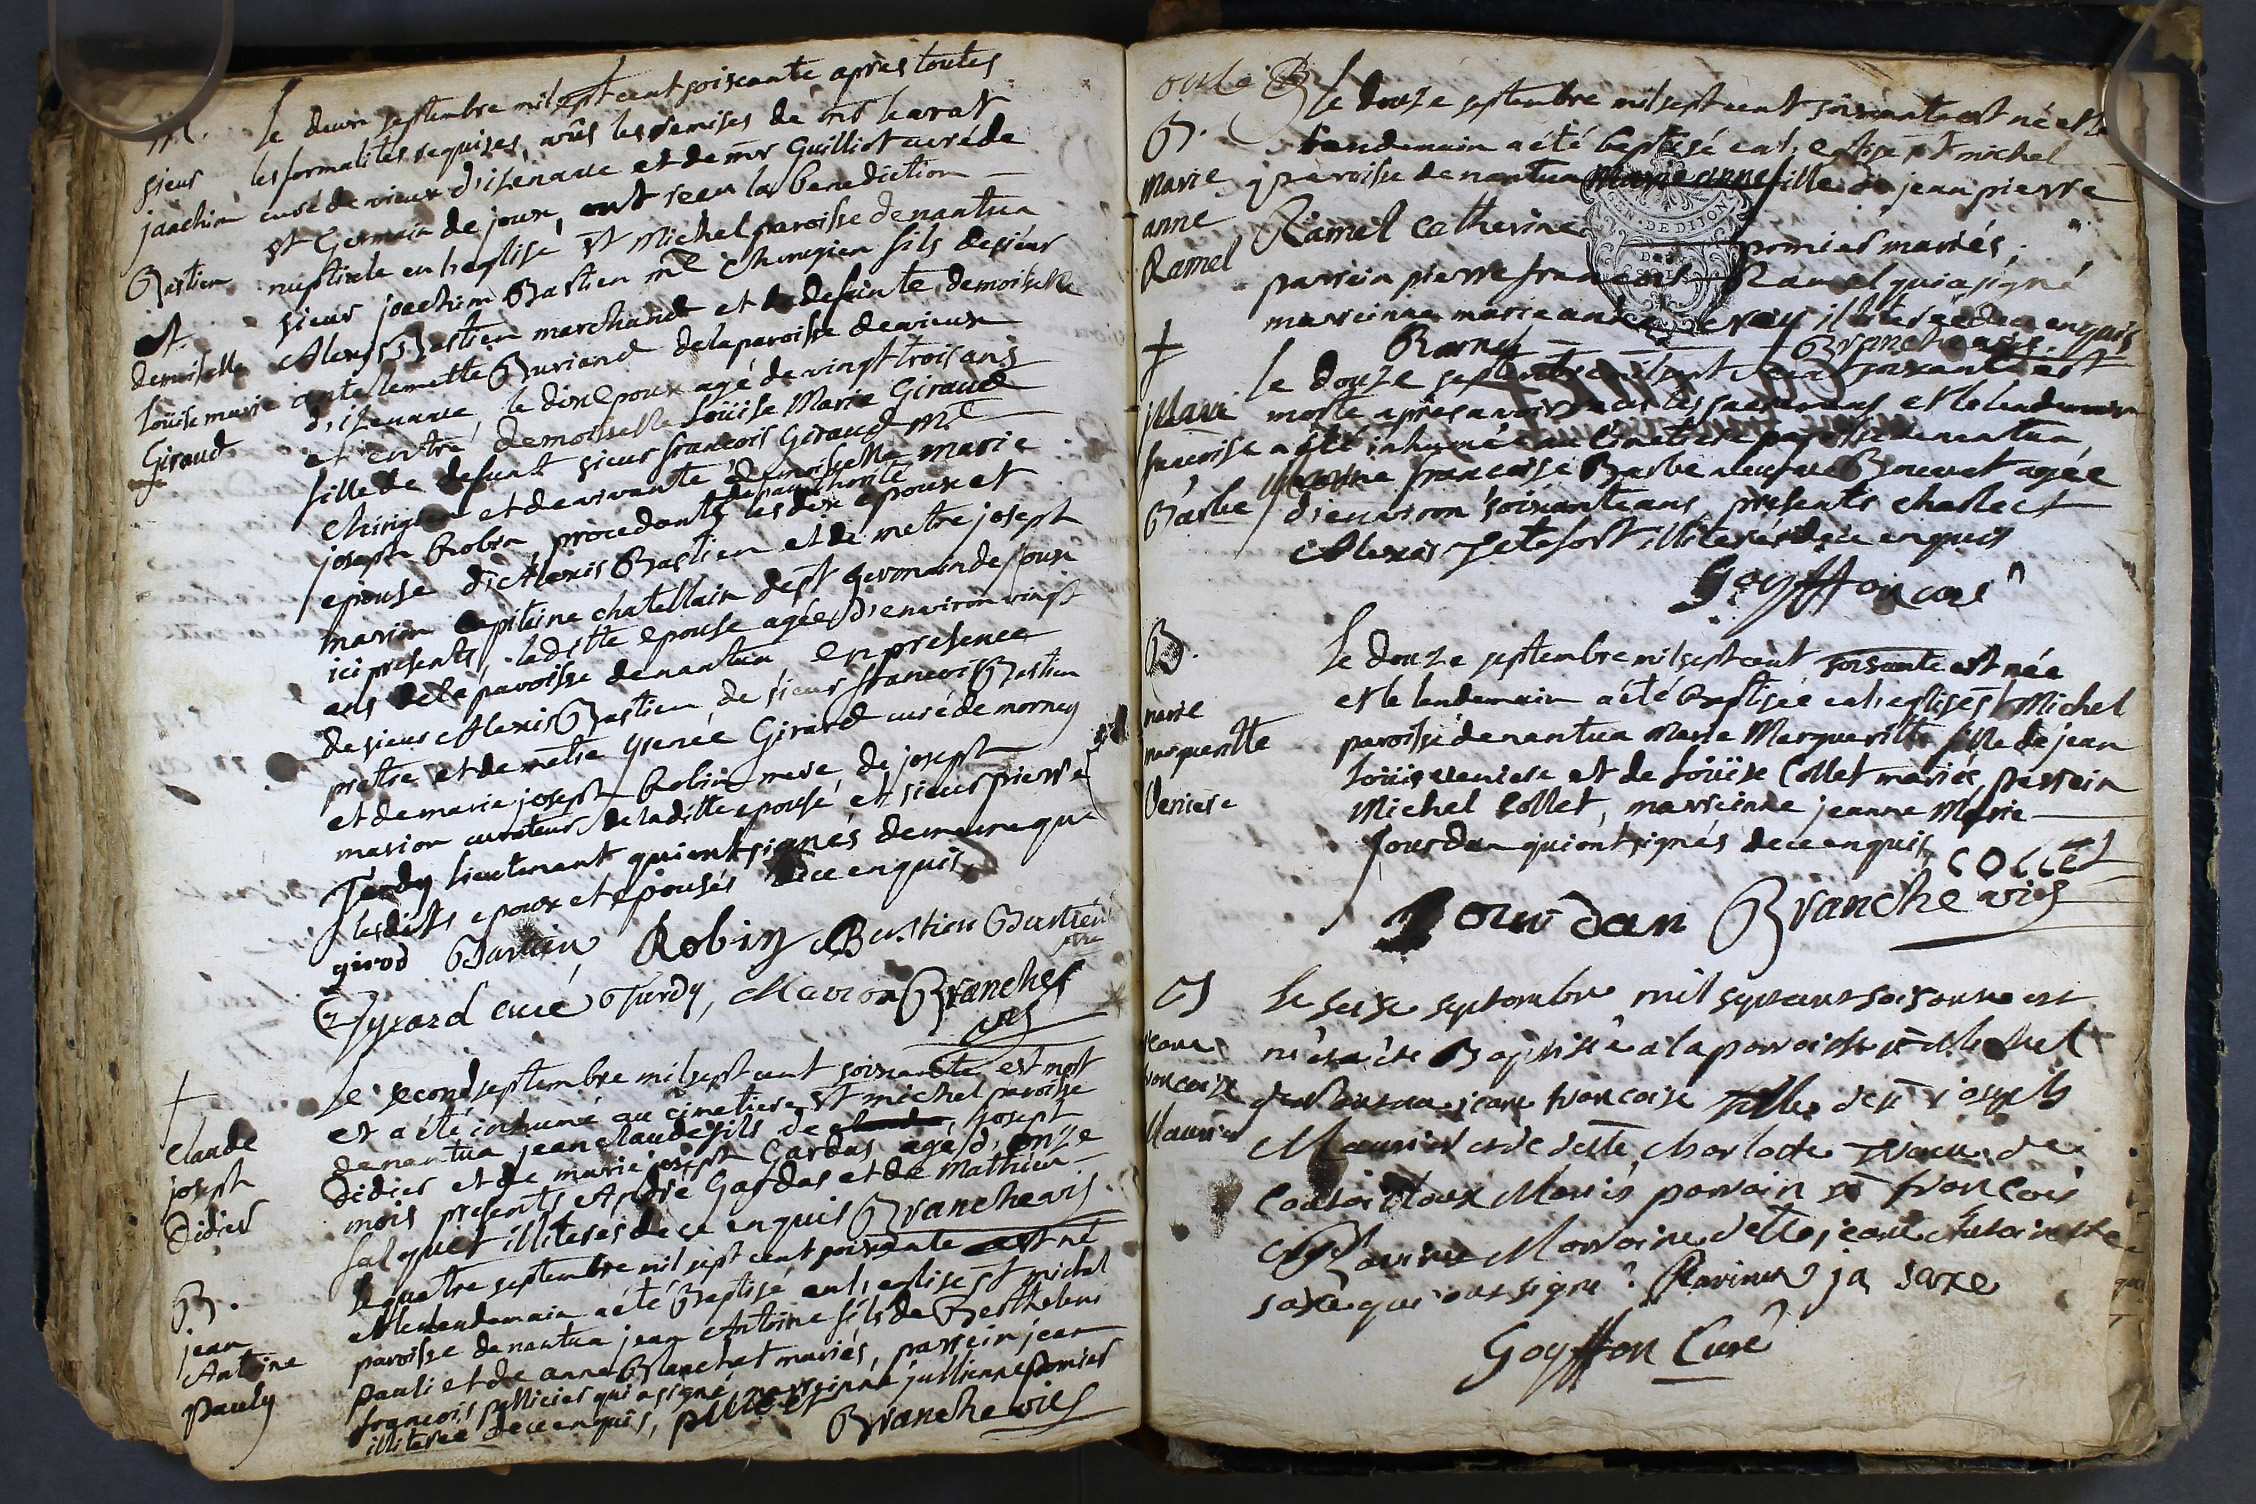 M.
sieur
joachim
Bastien
et
demoiselle
Loüise marie
Giraud
le deux septembre mil sept cent soixante après toutes
les formalités requises, vûes les remises de mr
curé de vieux d'isenave et de mr Guilliot curé de
st Germain de joux, ont reçu la benediction
nuptiale en l'eglise st Michel paroisse de nantua
sieur joachim Bastien me Chirurgien fils de sieur
Alexis Bastien marchand et de defeinte demoiselle
Buriand de la paroisse de vieux
d'isenave, le dit epoux agé de vingt trois ans
et entre demoiselle Loüise Marie Giraud
fille de defunt sieur francois Giraud me
Chirurgien et de vivante demoiselle marie
joseph Robin procedants de l'authorité lesdits epoux et
epouse d'Alexis Bastien et de metre joseph
marion capitaine chatellain de st germain de joux
ici presents, ladite epouse agée d'environ vingt
ans de la paroisse de nantua en presence
de sieur Alexis Bastien, de sieur francois Bastien
prêtre et de metre Girard curé de mornay
et de marie joseph Robin mere, de joseph
marion curateur de la ditte epouse, et sieur pierre
Tardy lieutenant qui ont signés de meme que
lesdits epoux et epouses de ce enquis
girod Bastien Robin Bastien Bastien
ptre
Gyrard curé Tardy, Marion Branche
vic
†
Claude
joseph
Didier
le second septembre mil sept cent soixante est mort
et a été inhumé au cimetiere st michel paroisse
de nantua jean claude fils de joseph
Didier et de marie joseph Gardas agé d'onze
mois presents André Gardas et de Mathieu
Jalquet illiterés de ce enquis Branche vic
B.
jean
Antoine
Pauly
le quatre septembre mil sept cent soixante est né
et le lendemain a été Baptisé en l'eglise st michel
paroisse de nantua jean Antoine fils de Berthelemi
Pauli et de anne Blanchet mariés, parrein jean
francois pellicier qui a signé, marreinne jullienne pomier
illiterée de ce enquis,
Branche vic
B.
Marie
anne
Ramel
le douze septembre mil sept cent soixante est né et le
lendemain a été baptisé en l'eglise st michel
paroisse de nantua Marie anne fille de jean pierre
Ramel Catherine pomier mariés,
parrein pierre francois Ramel qui a signé
marreinne marie illiterée de ce enquis
Ramel Branche vic
†
Marie
francoise
Barbe
le douze septembre mil sept cent soixante est
morte après avoir reçu les sacremens et le lendemain
a été inhumée au cimetiere paroisse de nantua
Marie francoise Barbe veuve Bouvet agée
d'environ soixante ans, presents charle et
Alexis Jetefort illiterés de ce enquis
Goyffon curé
B.
marie
margueritte
Veniere
Le douze septembre mil sept cent soixante est née
et le lendemain a été Baptisée en l'eglise st Michel
paroisse de nantua Marie Marguerite fille de jean
Loüis veniere et de Loüise Collet mariés, parrein
Michel Collet, marreinne jeanne Marie
Jourdan qui ont signés de ce enquis
COLLET
Jourdan Branche vic
B
jeane
francoise
Maurier
Le seise septembre mil sept cent soisante est
née et a été Baptisée a la parroisse st Michel
de Nantua jeane francoise fille de sr joseph
Maurier et de delle charlotte de
Mariés parrain sr francois
Ravinet Marraine delle jeane Antoinette
saxe qui ont signé. Ravinet ja saxe
Goyffon Curé
GEN. DE DIJON